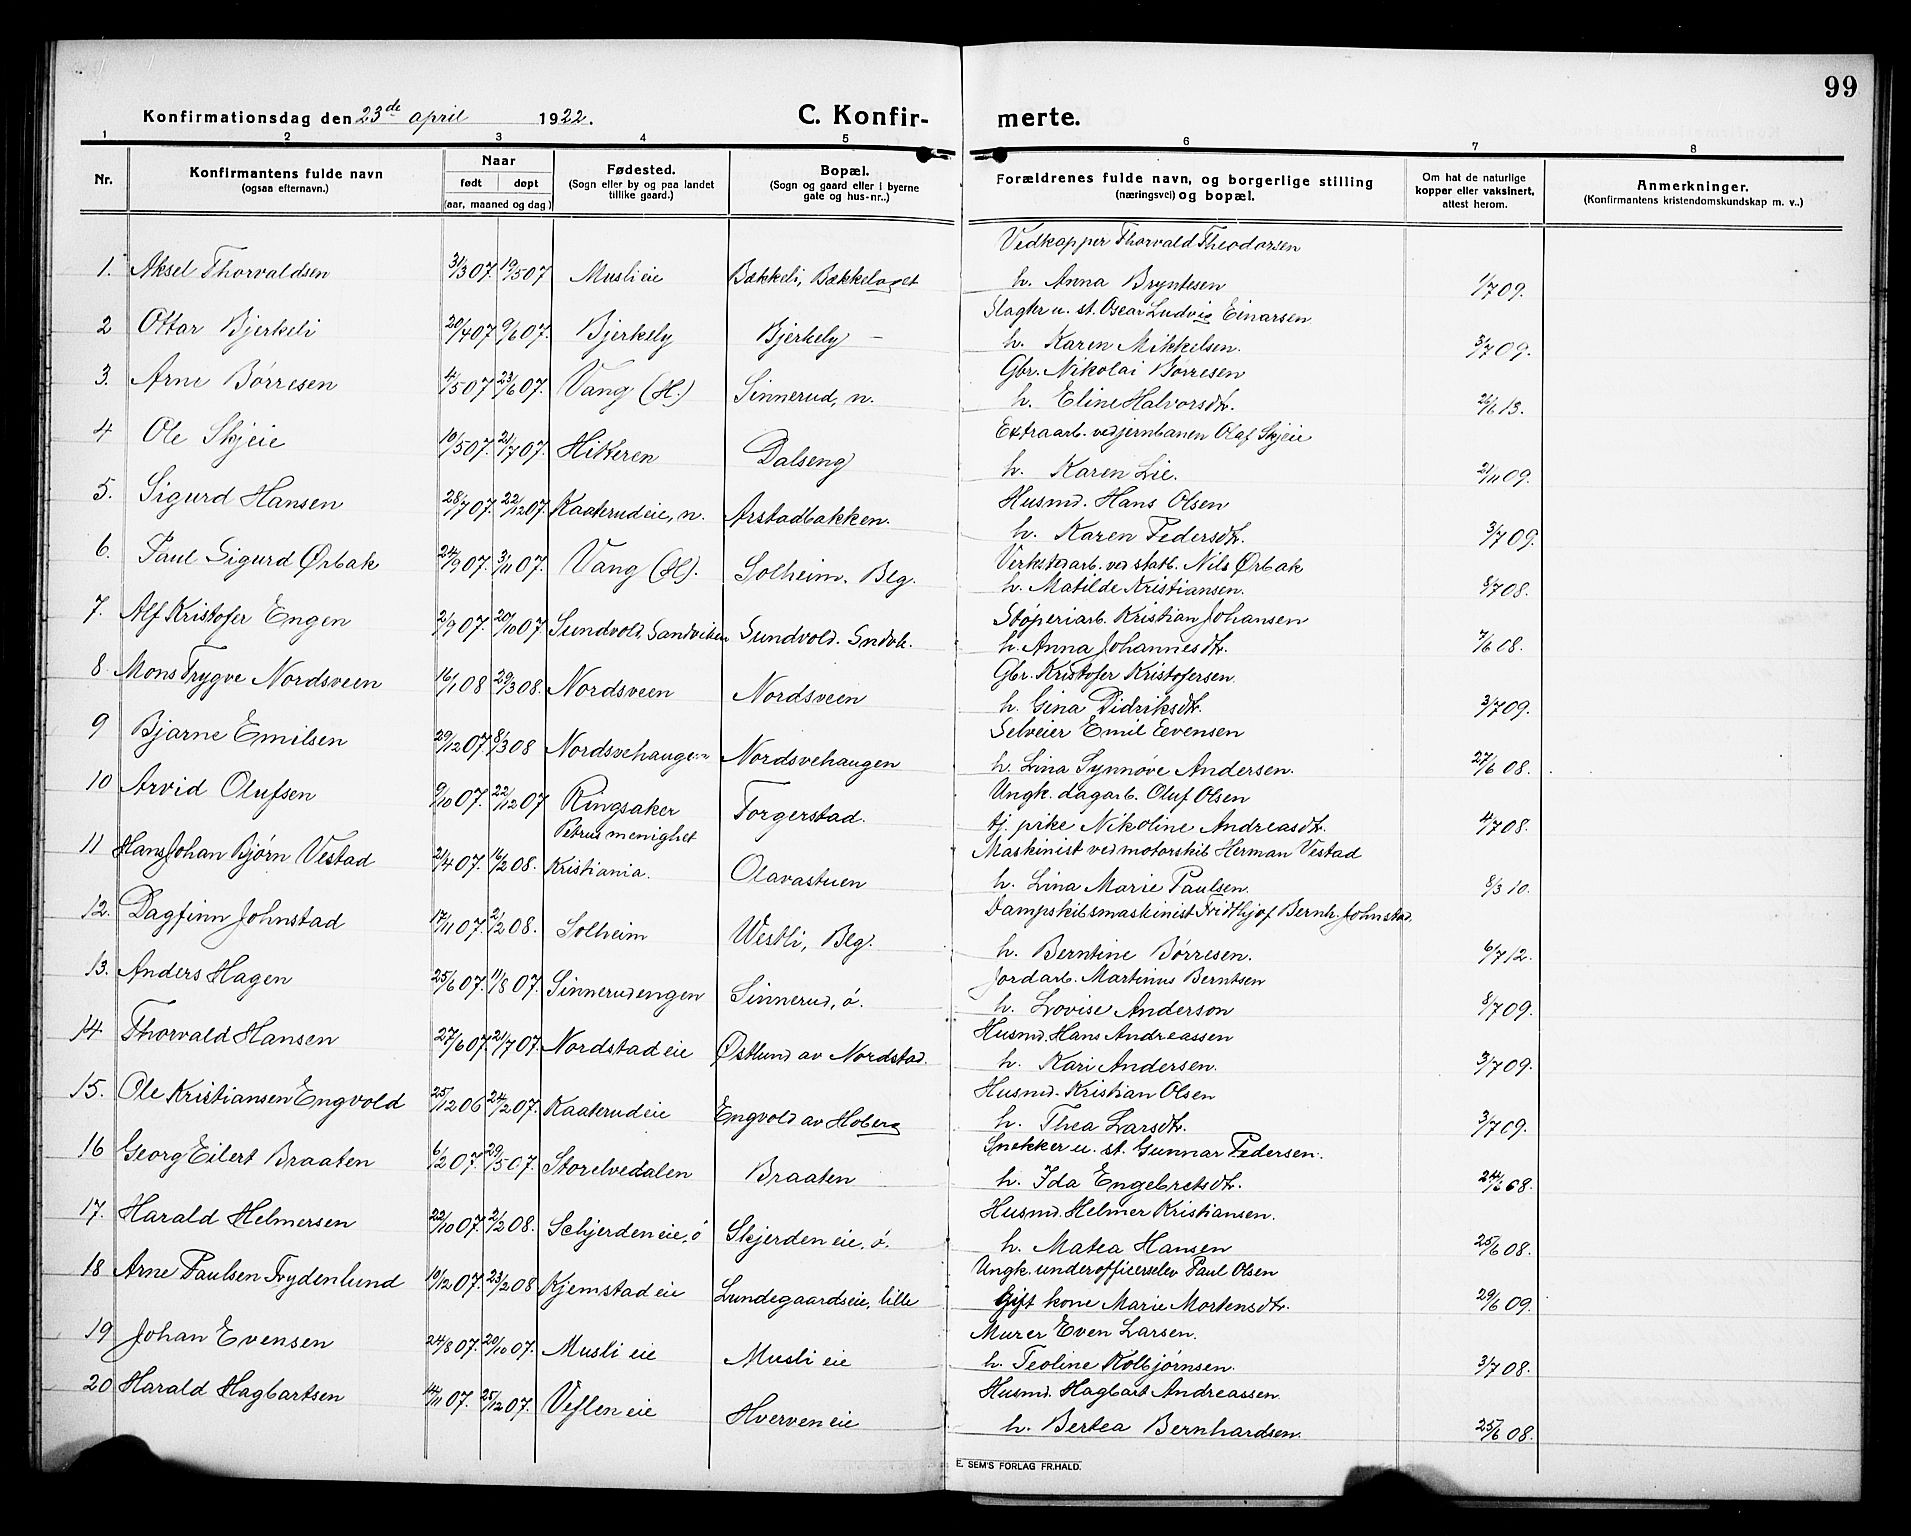 99
Konfirmationsdag den 23de april 1922. C. Konfirmerte.
1 2 3 4 5 6 7 8
Nr. Konfirmantens fulde navn (ogsaa efternavn.) Naar født døpt (aar, maaned og dag) Fødested. (Sogn eller by og paa landet tillike gaard.) Bopæl. (Sogn og gaard eller i byerne gate og hus-nr.) Forældrenes fulde navn, og borgerlige stilling (næringsvei) og bopæl. Om hat de naturlige kopper eller vaksinert, attest herom. Anmerkninger. (Konfirmantens kristendomskundskap m. v.)
Vedkapper Thorvald Theodorsen
1. Aksel Thorvaldsen 31/3 07 19/5 07 Musli eie Bækkeli, Bækkelaget h. Anna Bryntesen 1/7 09.
Slagter u. st. Oscar Ludvig Einarsen
2 Ottar Bjerkeli 20/4 07 9/6 07. Bjerkely Bjerkely – h. Karen Mikkelsen. 3/7 09.
Gbr. Nikolai Børresen
3. Arne Børresen 4/5 07 23/6 07. Vang (H.) Sinnerud, n. h. Eline Halvorsdtr. 26/6 13.
Extraarb. ved jernbanen Olaf Skjeie
4 Ole Skjeie 10/5 07. 21/7 07. Hitteren Dalseng h. Karen Lie. 21/11 09.
Husmd. Hans Olsen
5. Sigurd Hansen 28/7 07. 22/12 07. Kaaterud eie, n. Arstadbakken. h. Karen Pedersdtr. 3/7 09.
Verkstedarb. ved statb. Nils Ørbak
6. Paul Sigurd Ørbak 24/9 07. 3/11 07. Vang (H). Solheim. Blg. h. Matilde Kristiansen. 8/7 08.
Støperiarb. Kristian Johansen
7. Alf Kristofer Engen 2/9 07. 20/10 07. Sundvold. Sandviken Sundvold. Sndvk. h. Anna Johannesdtr. 7/6 08.
Gbr. Kristofer Kristofersen.
8 Mons Trygve Nordsveen 16/1 08 29/3 08. Nordsveen Nordsveen h. Gina Didriksdtr. 3/7 09.
Selveier Emil Evensen
9 Bjarne Emilsen 29/12 07 8/3 08 Nordsvehaugen Nordsvehaugen h. Lina Synnøve Andersen. 27/6 08.
Ungk. dagarb. Oluf Olsen
10 Arvid Olufsen 9/10 07. 22/12 07 Ringsaker Torgerstad. tj. pike Nikoline Andreasdtr. 4/7 08.
Petrus menighet Maskinist ved motorskib Herman Vestad
11 Hans Johan Bjørn Vestad 21/4 07. 16/2 08. Kristiania. Olavastuen h. Lina Marie Paulsen. 8/3 10.
Dampskibsmaskinist Fridthjof Bernh. Johnstad.
12. Dagfinn Johnstad 17/11 07. 2/2 08. Solheim Westli, Blg. h. Berntine Børresen. 6/7 12.
Jordarb. Martinus Berntsen
13. Anders Hagen 25/6 07. 11/8 07. Sinnerudengen Sinnerud, ø. h. Lovise Anderson 8/7 09.
Husmd. Hans Andreassen
14 Thorvald Hansen 27/6 07. 21/7 07. Nordstad eie Østlund av Nordstad. h. Kari Andersen. 3/7 09.
Husmd. Kristian Olsen
15. Ole Kristiansen Engvold 25/12 06 24/2 07. Kaaterud eie Engvold av Hoberg h. Thea Larsdtr. 3/7 09.
Snekker u. st. Gunnar Pedersen.
16 Georg Eilert Braaten 6/2 07. 29/5 07. Storelvedalen Braaten h. Ida Engebretsdtr. 24/6 08.
Husmd. Helmer Kristiansen.
17. Harald Helmersen 22/10 07. 2/2 08. Schjerden eie, ø Skjerden eie, ø. h. Matea Hansen 25/6 08.
Ungk. underofficerselev Paul Olsen
18 Arne Paulsen Frydenlund 10/12 07. 23/2 08 Kjemstad eie Lundegaardseie, lille Gift kone Marie Mortensdtr. 29/6 09.
Murer Even Larsen.
19 Johan Evensen 24/8 07. 20/10 07. Musli eie Musli eie h. Teoline Kolbjørnsen. 3/7 08.
Husmd. Hagbart Andreassen
20 Harald Hagbartsen 14/11 07. 25/12 07. Veflen eie Hverven eie h. Bertea Bernhardsen. 25/6 08.
E. SEM'S FORLAG FR.HALD.